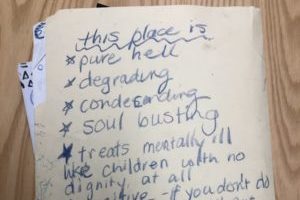 this place is
* pure hell
* degrading
* condesending
* soul busting
* treats mentally ill
like children with no
dignity, at all
if you don't do